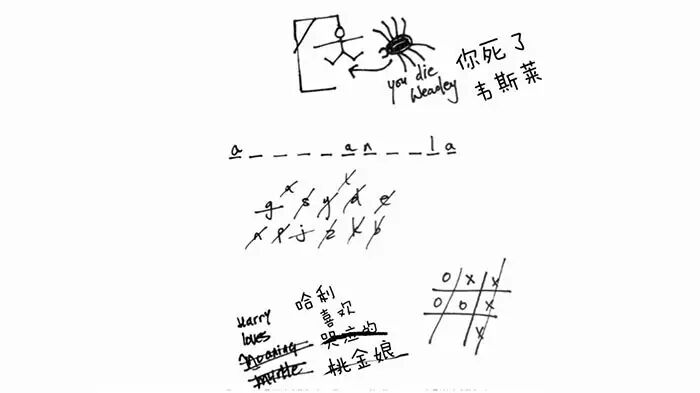 you die 你死了
Weasley 韦斯莱
a _ _ _ _ a n _ _ l a
g s y d e
j z k b
Harry 哈利
loves 喜欢
Moaning 哭泣的
Myrtle 桃金娘
O X X
O O X
X